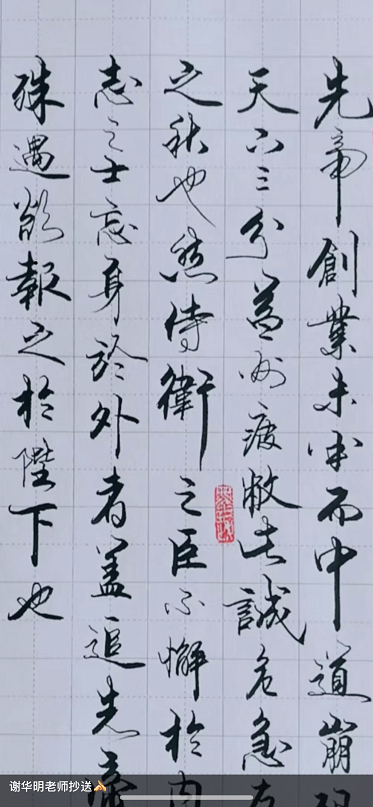 先帝創業未半而中道崩
天下三分益州疲敝此誠危急存
之秋也然侍衛之臣不懈於内
志之士忘身於外者蓋追先帝
殊遇欲報之於陛下也
谢华明老师抄送🙏